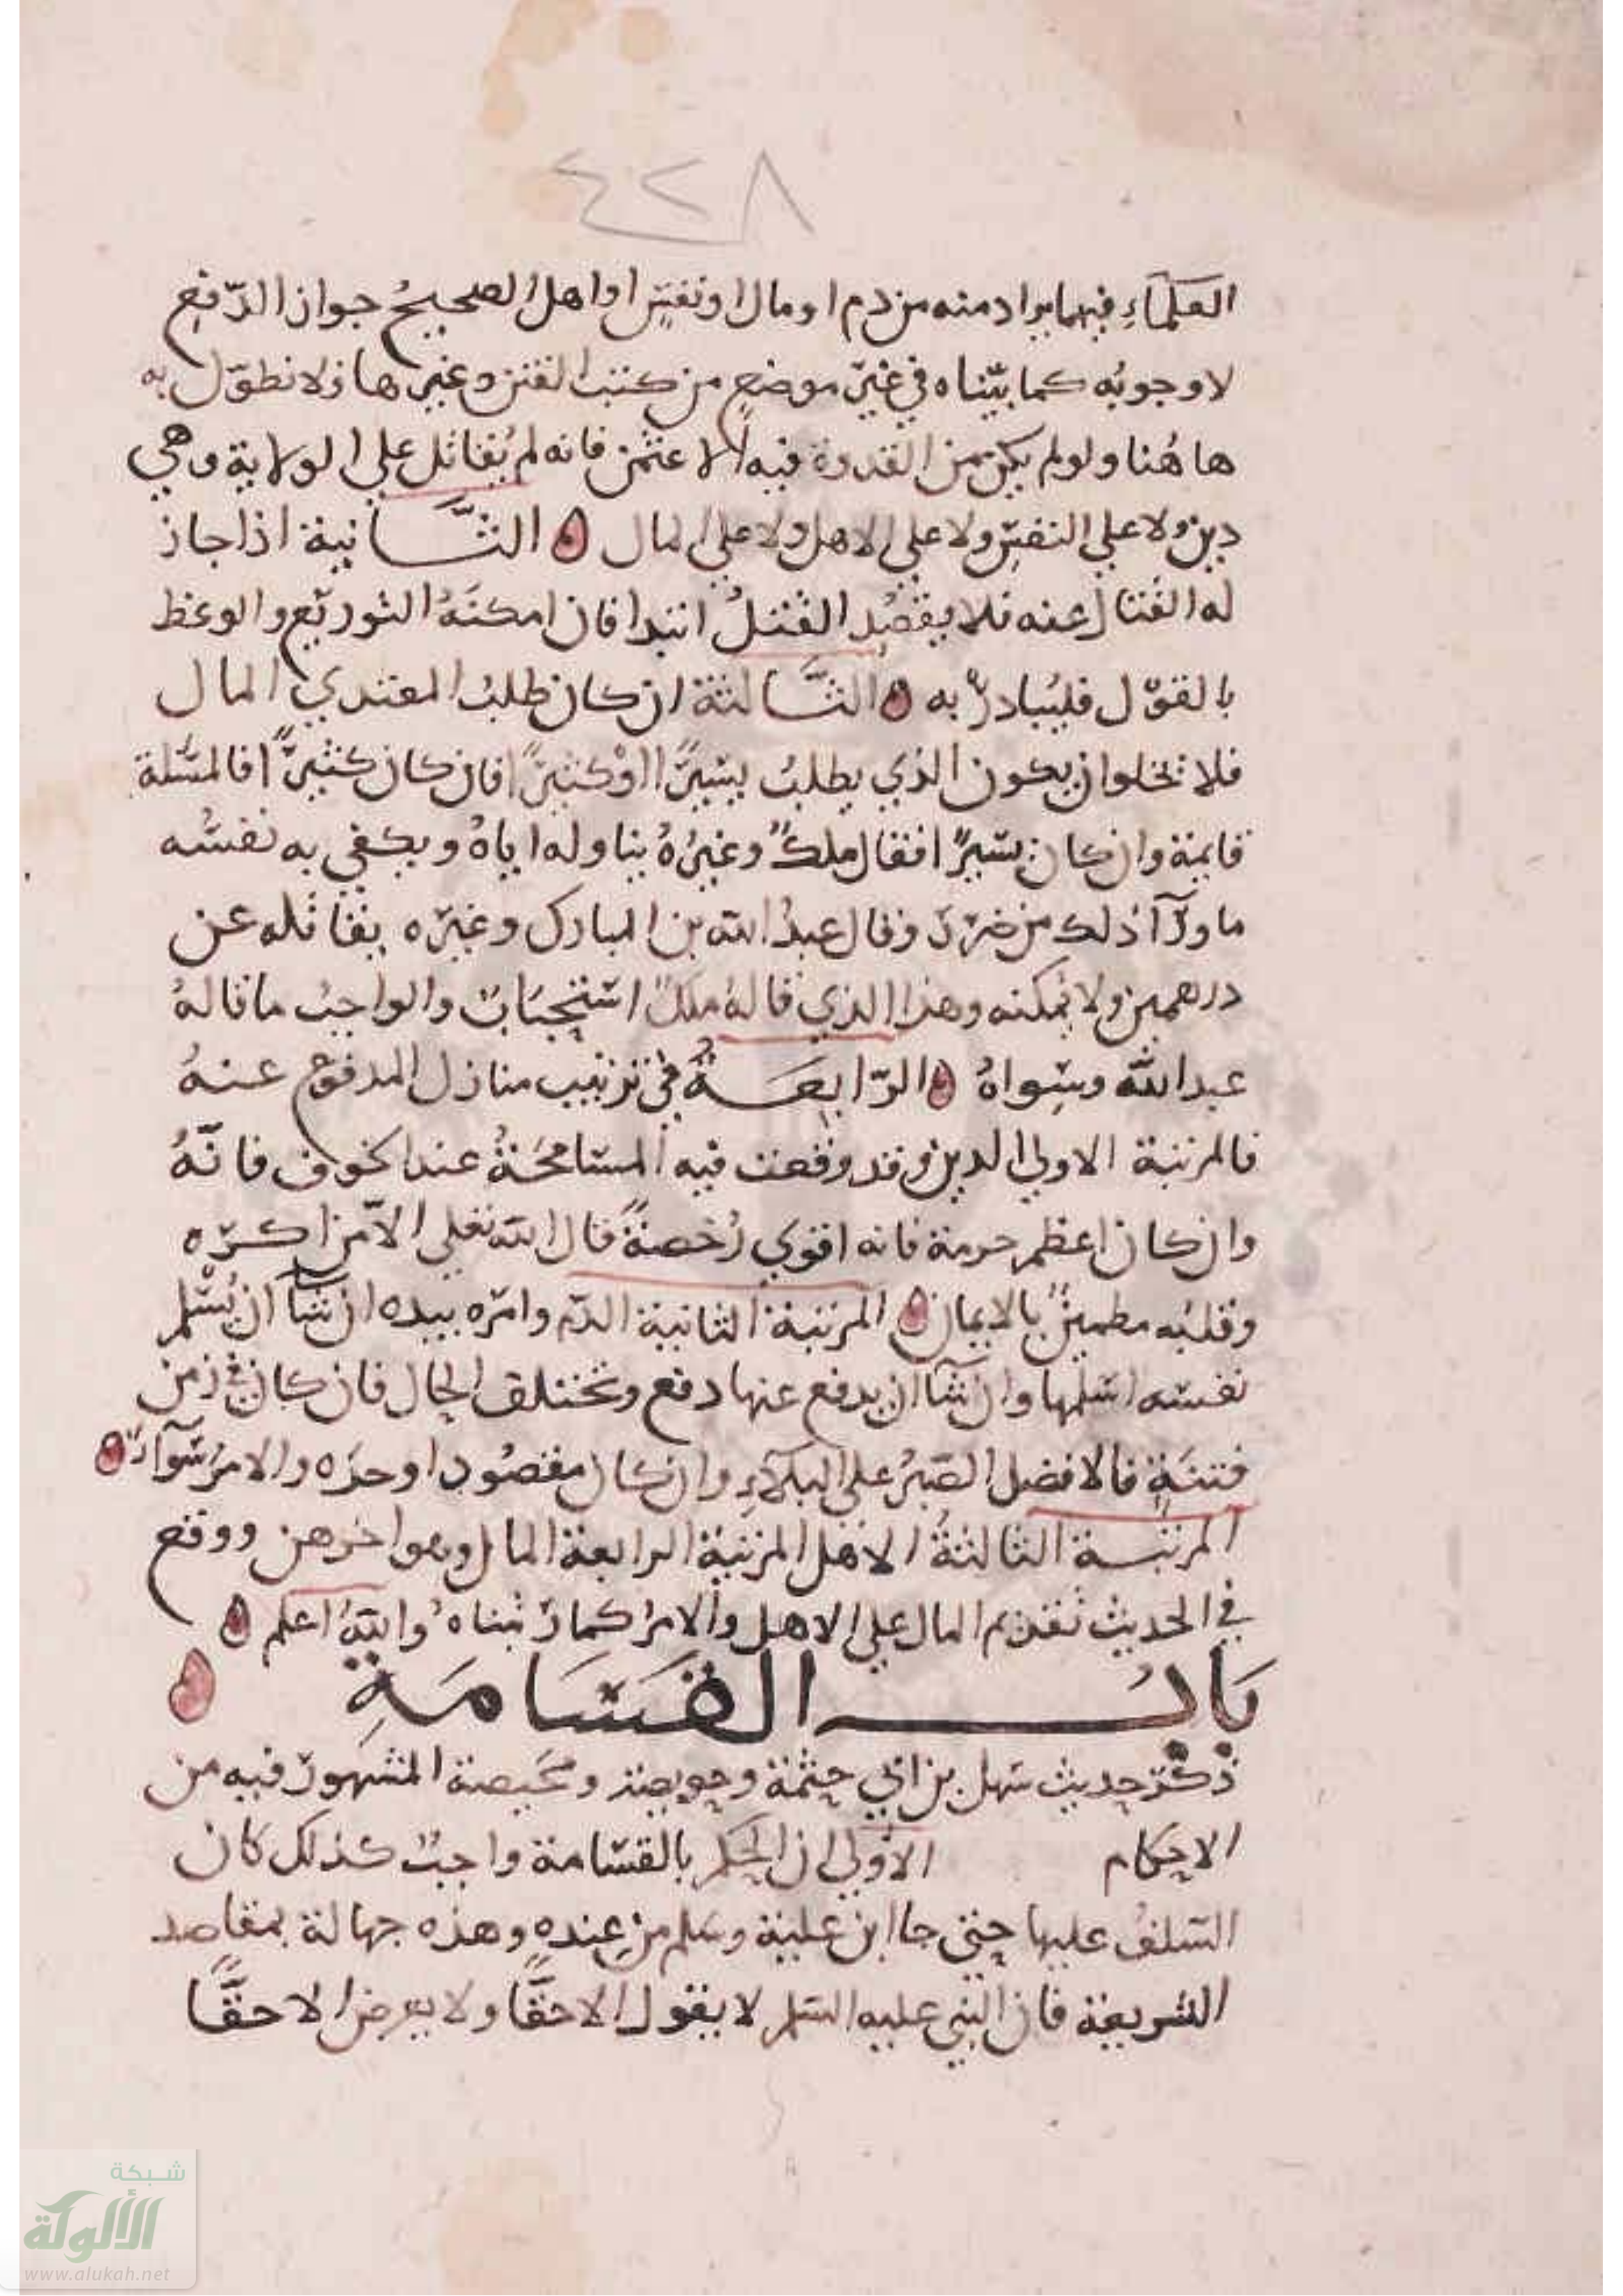 ٤٢٨
العلماء فيما يراد منه من دم او مال او نفس او اهل الصحيح جواز الدفع
لا وجوبه كما بيناه في غير موضع من كتب الفتن وغيرها فلا نطول به
هاهنا ولو لم يكن من القدوة فيه الا عثمن فانه لم يقاتل علي الولاية وهي
دين ولا علي النفس ولا علي الاهل ولا علي المال الثانية اذا جاز
له القتال عنه فلا يقصد القتل ابتدا فان امكنه التوريع والوعظ
بالقول فليبادر به الثالثة ان كان طلب المعتدي المال
فلا تخلوا ان يكون الذي يطلب يسيرا او كثيرا فان كان كثيرا فالمسلة
قايمة وان كان يسيرا فقال ملك وغيره يناوله اياه ويكفي به نفسه
ما ورآ ذلك من ضرر وقال عبد الله بن المبارك وغيره يقاتله عن
درهمين ولا يمكنه وهذا الذي قاله ملك استحباب والواجب ما قاله
عبد الله وسواه الرابعة في ترتيب منازل المدفوع عنه
فالمرتبة الاولي الدين وقد وقعت فيه المسامحة عند الخوف فانه
وان كان اعظم حرمة فانه اقوي رخصة قال الله تعلي الا من اكره
وقلبه مطمين بالايمان المرتبة الثانية الدم وامره بيده ان شآ ان يسلم
نفسه اسلمها وان شآ ان يدفع عنها دفع وتختلف الحال فان كان في زمن
فتنة فالافضل الصبر علي البلآء وان كان مقصودا وحده والامر سوآ
المرتبة الثالثة الاهل المرتبة الرابعة المال وهو اخرهن ووقع
في الحديث تقديم المال علي الاهل والامر كما رتبناه والله اعلم
باب القسامة
ذكر حديث سهل بن ابي حثمة وحويصة ومحيصة المشهور فيه من
الاحكام الاولي ان الحكم بالقسامة واجب كذلك كان
السلف عليها حتى جا ابن علية وسلم من عنده وهذه جهالة بمقاصد
الشريعة فان النبي عليه السلم لا يقول الا حقا ولا يعرض الا حقا
شبكة
الألوكة
www.alukah.net